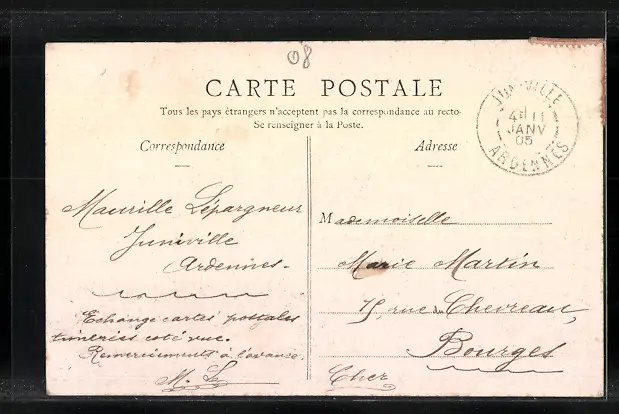 08
CARTE POSTALE
Tous les pays étrangers n'acceptent pas la correspondance au recto
Se renseigner à la Poste.
Correspondance
Adresse
JUNIVILLE
11
JANV
05
ARDENNES
Maurille Lépargneur
Juniville
Ardennes -
Echange cartes postales
timbrées coté vue.
Remerciements à l'avance.
M. L
Mademoiselle
Marie Martin
rue du Chevreau,
Bourges
Cher